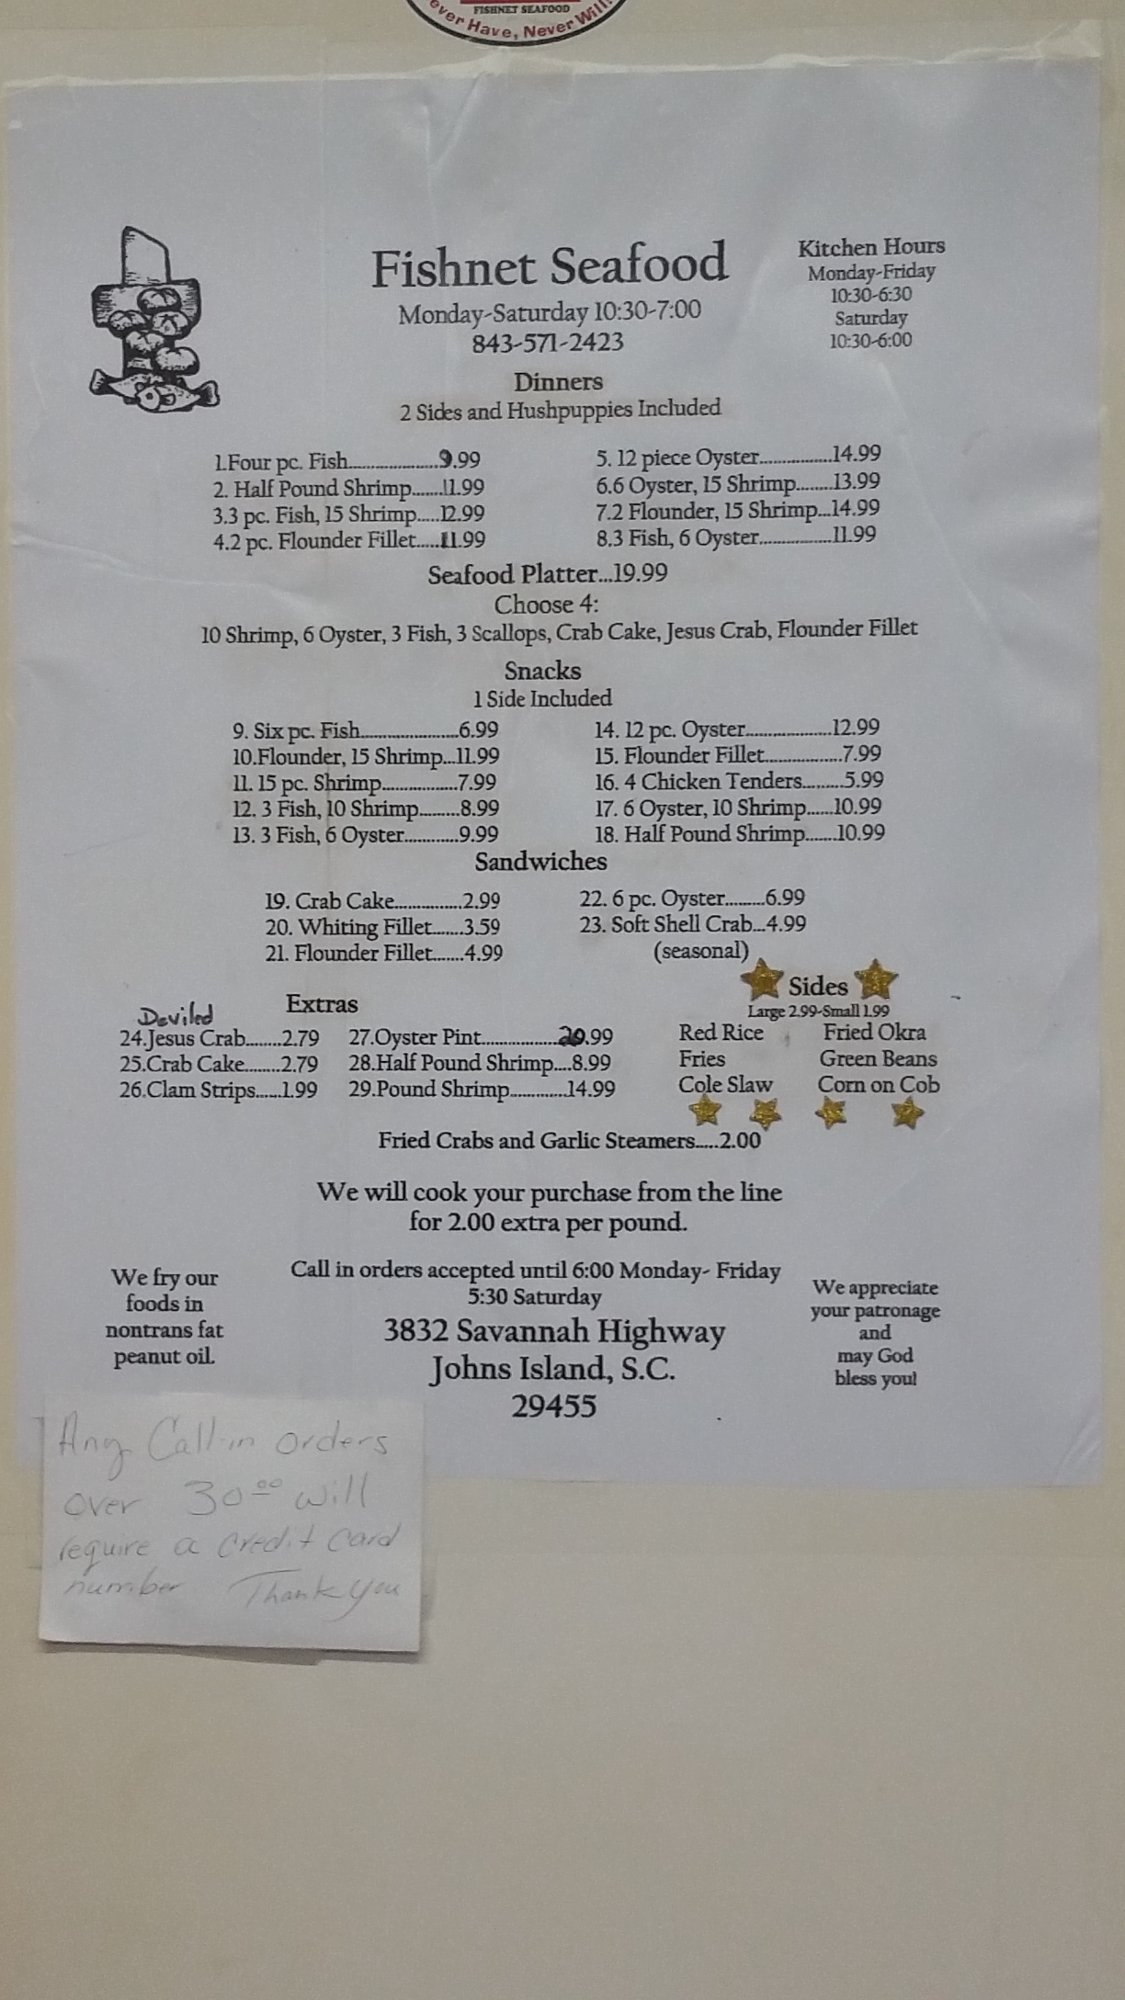 FISHNET SEAFOOD
ever Have, Never Will!
Fishnet Seafood
Monday-Saturday 10:30-7:00
843-571-2423
Kitchen Hours
Monday-Friday
10:30-6:30
Saturday
10:30-6:00
Dinners
2 Sides and Hushpuppies Included
1.Four pc. Fish......................9.99
2. Half Pound Shrimp.......11.99
3.3 pc. Fish, 15 Shrimp.....12.99
4.2 pc. Flounder Fillet.....11.99
5. 12 piece Oyster................14.99
6.6 Oyster, 15 Shrimp........13.99
7.2 Flounder, 15 Shrimp...14.99
8.3 Fish, 6 Oyster................11.99
Seafood Platter...19.99
Choose 4:
10 Shrimp, 6 Oyster, 3 Fish, 3 Scallops, Crab Cake, Jesus Crab, Flounder Fillet
Snacks
1 Side Included
9. Six pc. Fish......................6.99
10.Flounder, 15 Shrimp...11.99
11. 15 pc. Shrimp.................7.99
12. 3 Fish, 10 Shrimp.........8.99
13. 3 Fish, 6 Oyster............9.99
14. 12 pc. Oyster...................12.99
15. Flounder Fillet.................7.99
16. 4 Chicken Tenders.........5.99
17. 6 Oyster, 10 Shrimp......10.99
18. Half Pound Shrimp.......10.99
Sandwiches
19. Crab Cake...............2.99
20. Whiting Fillet.......3.59
21. Flounder Fillet.......4.99
22. 6 pc. Oyster.........6.99
23. Soft Shell Crab...4.99
(seasonal)
Extras
Deviled
24.Jesus Crab........2.79
25.Crab Cake........2.79
26.Clam Strips......1.99
27.Oyster Pint.................20.99
28.Half Pound Shrimp....8.99
29.Pound Shrimp.............14.99
Sides
Large 2.99-Small 1.99
Red Rice
Fries
Cole Slaw
Fried Okra
Green Beans
Corn on Cob
Fried Crabs and Garlic Steamers.....2.00
We will cook your purchase from the line
for 2.00 extra per pound.
Call in orders accepted until 6:00 Monday- Friday
5:30 Saturday
3832 Savannah Highway
Johns Island, S.C.
29455
We fry our
foods in
nontrans fat
peanut oil.
We appreciate
your patronage
and
may God
bless you!
Any Call-in orders
over 30.00 will
require a credit card
number Thank you